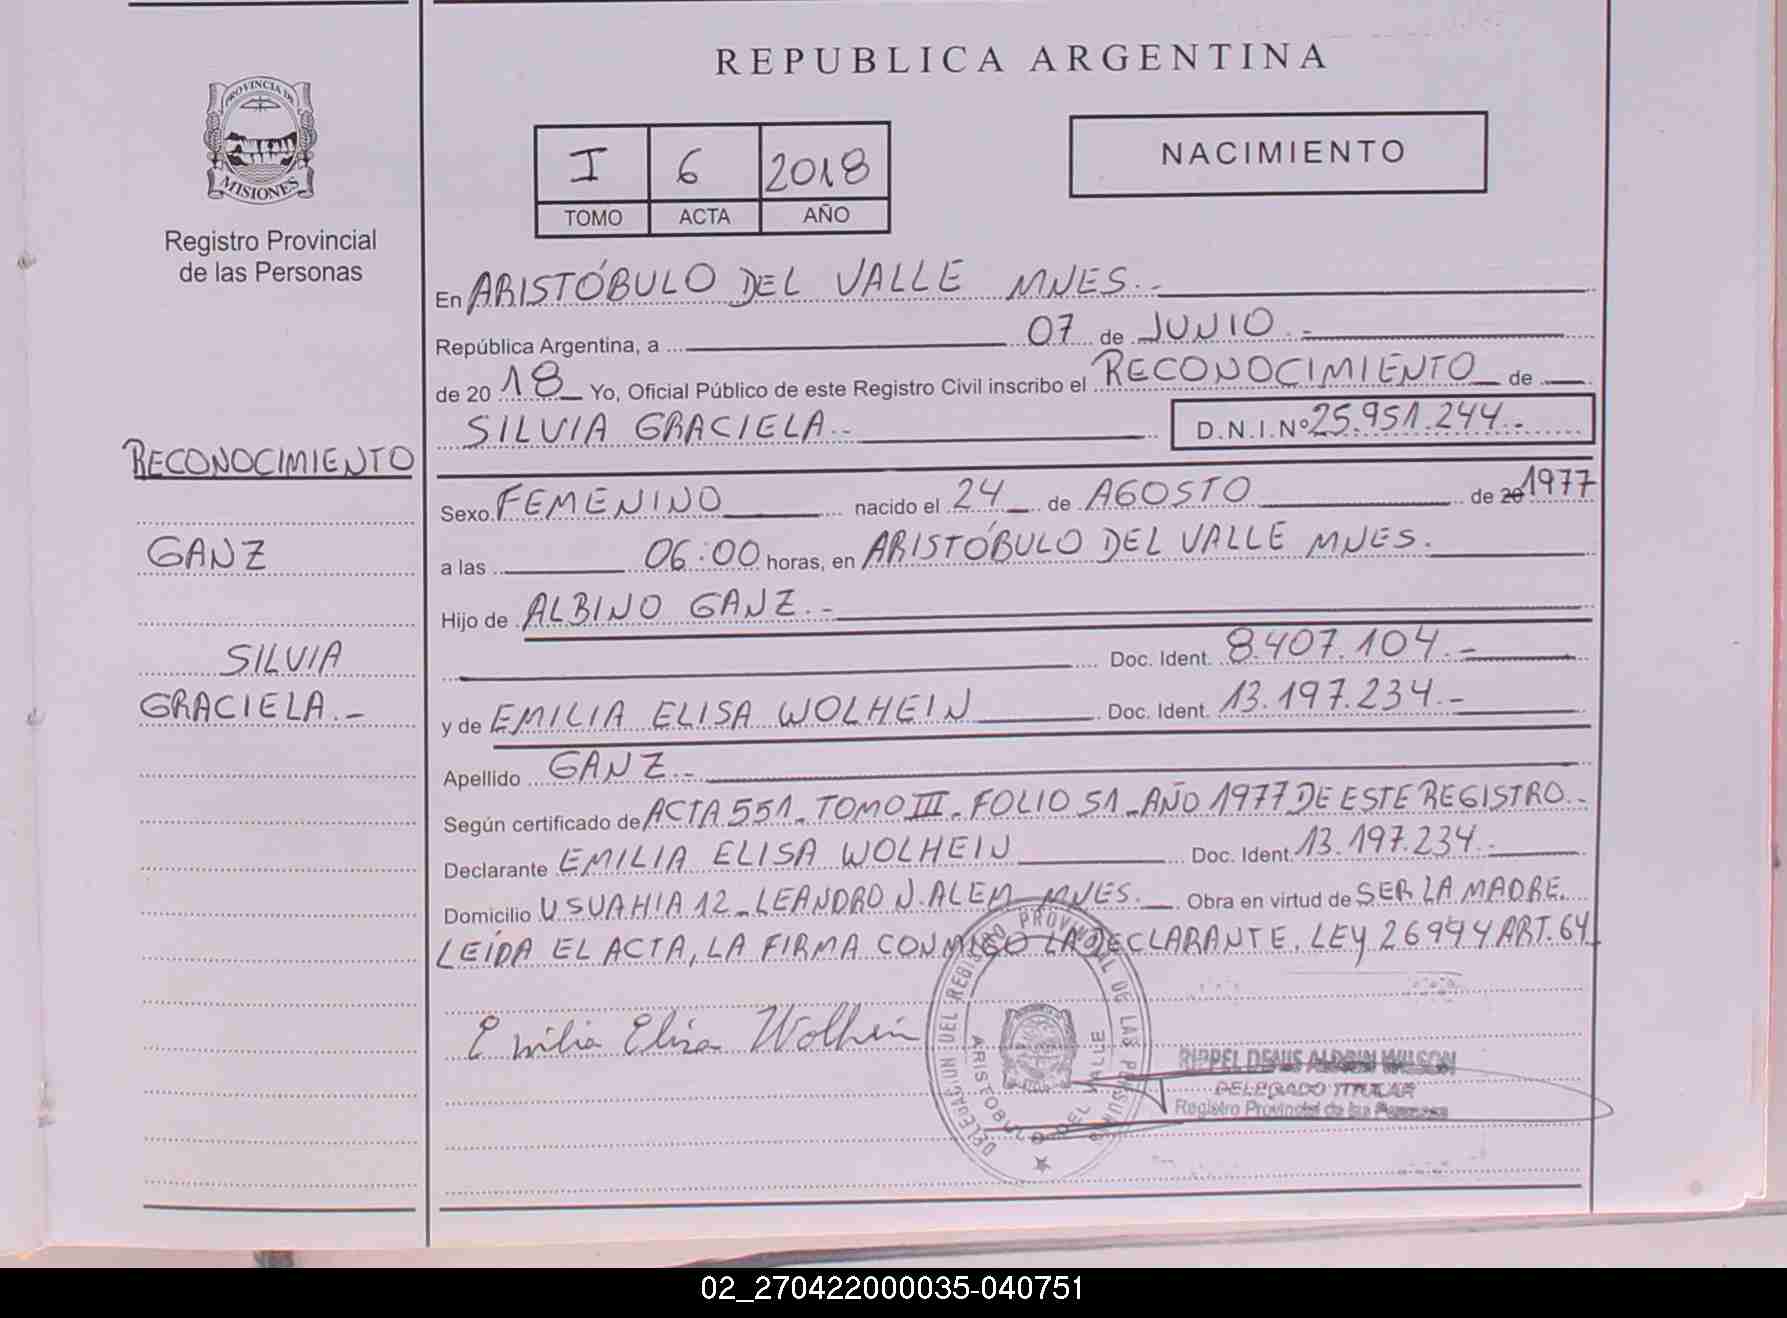 REPUBLICA ARGENTINA
PROVINCIA DE
MISIONES
Registro Provincial
de las Personas
I 6 2018
TOMO ACTA AÑO
NACIMIENTO
En ARISTÓBULO DEL VALLE MNES.-
República Argentina, a 07 de JUNIO.-
de 20 18 Yo, Oficial Público de este Registro Civil inscribo el RECONOCIMIENTO de
SILVIA GRACIELA.- D.N.I.Nº 25.951.244.-
RECONOCIMIENTO
GANZ
SILVIA
GRACIELA.-
Sexo FEMENINO nacido el 24 de AGOSTO de 20 1977
a las 06:00 horas, en ARISTÓBULO DEL VALLE MNES.
Hijo de ALBINO GANZ.-
Doc. Ident. 8.407.104.-
y de EMILIA ELISA WOLHEIN Doc. Ident. 13.197.234.-
Apellido GANZ.-
Según certificado de ACTA 551_ TOMO III_ FOLIO 51_AÑO 1977 DE ESTE REGISTRO.-
Declarante EMILIA ELISA WOLHEIN Doc. Ident. 13.197.234.-
Domicilio USUAHIA 12_LEANDRO N.ALEM MNES. Obra en virtud de SER LA MADRE.
LEÍDA EL ACTA, LA FIRMA CONMIGO LA DECLARANTE. LEY 26994 ART.64
Emilia Elisa Wolhein
DELEGACION DEL REGISTRO PROVINCIAL DE LAS PERSONAS
ARISTOBULO DEL VALLE
RIPPEL DENIS ALDRIN WILSON
DELEGADO TITULAR
Registro Provincial de las Personas
02_270422000035-040751